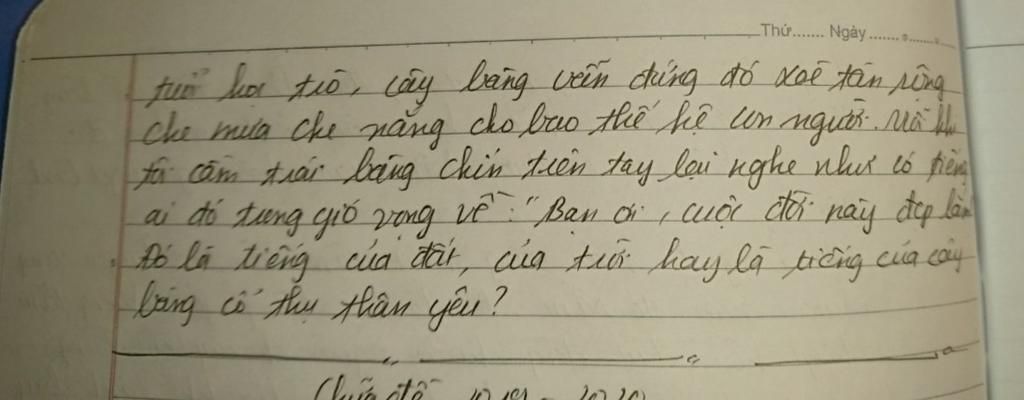 Thứ....... Ngày.........
tuổi học trò, cây bàng vẫn đứng đó xoè tán rộng
che mưa che nắng cho bao thế hệ con người. Mỗi khi
tôi cầm trái bàng chín trên tay lại nghe như có tiếng
ai đó trong gió vọng về: "Bạn ơi, cuộc đời này đẹp lắm
Đó là tiếng của đất, của trời hay là tiếng của cây
bàng cổ thụ thân yêu?
Chữa đề